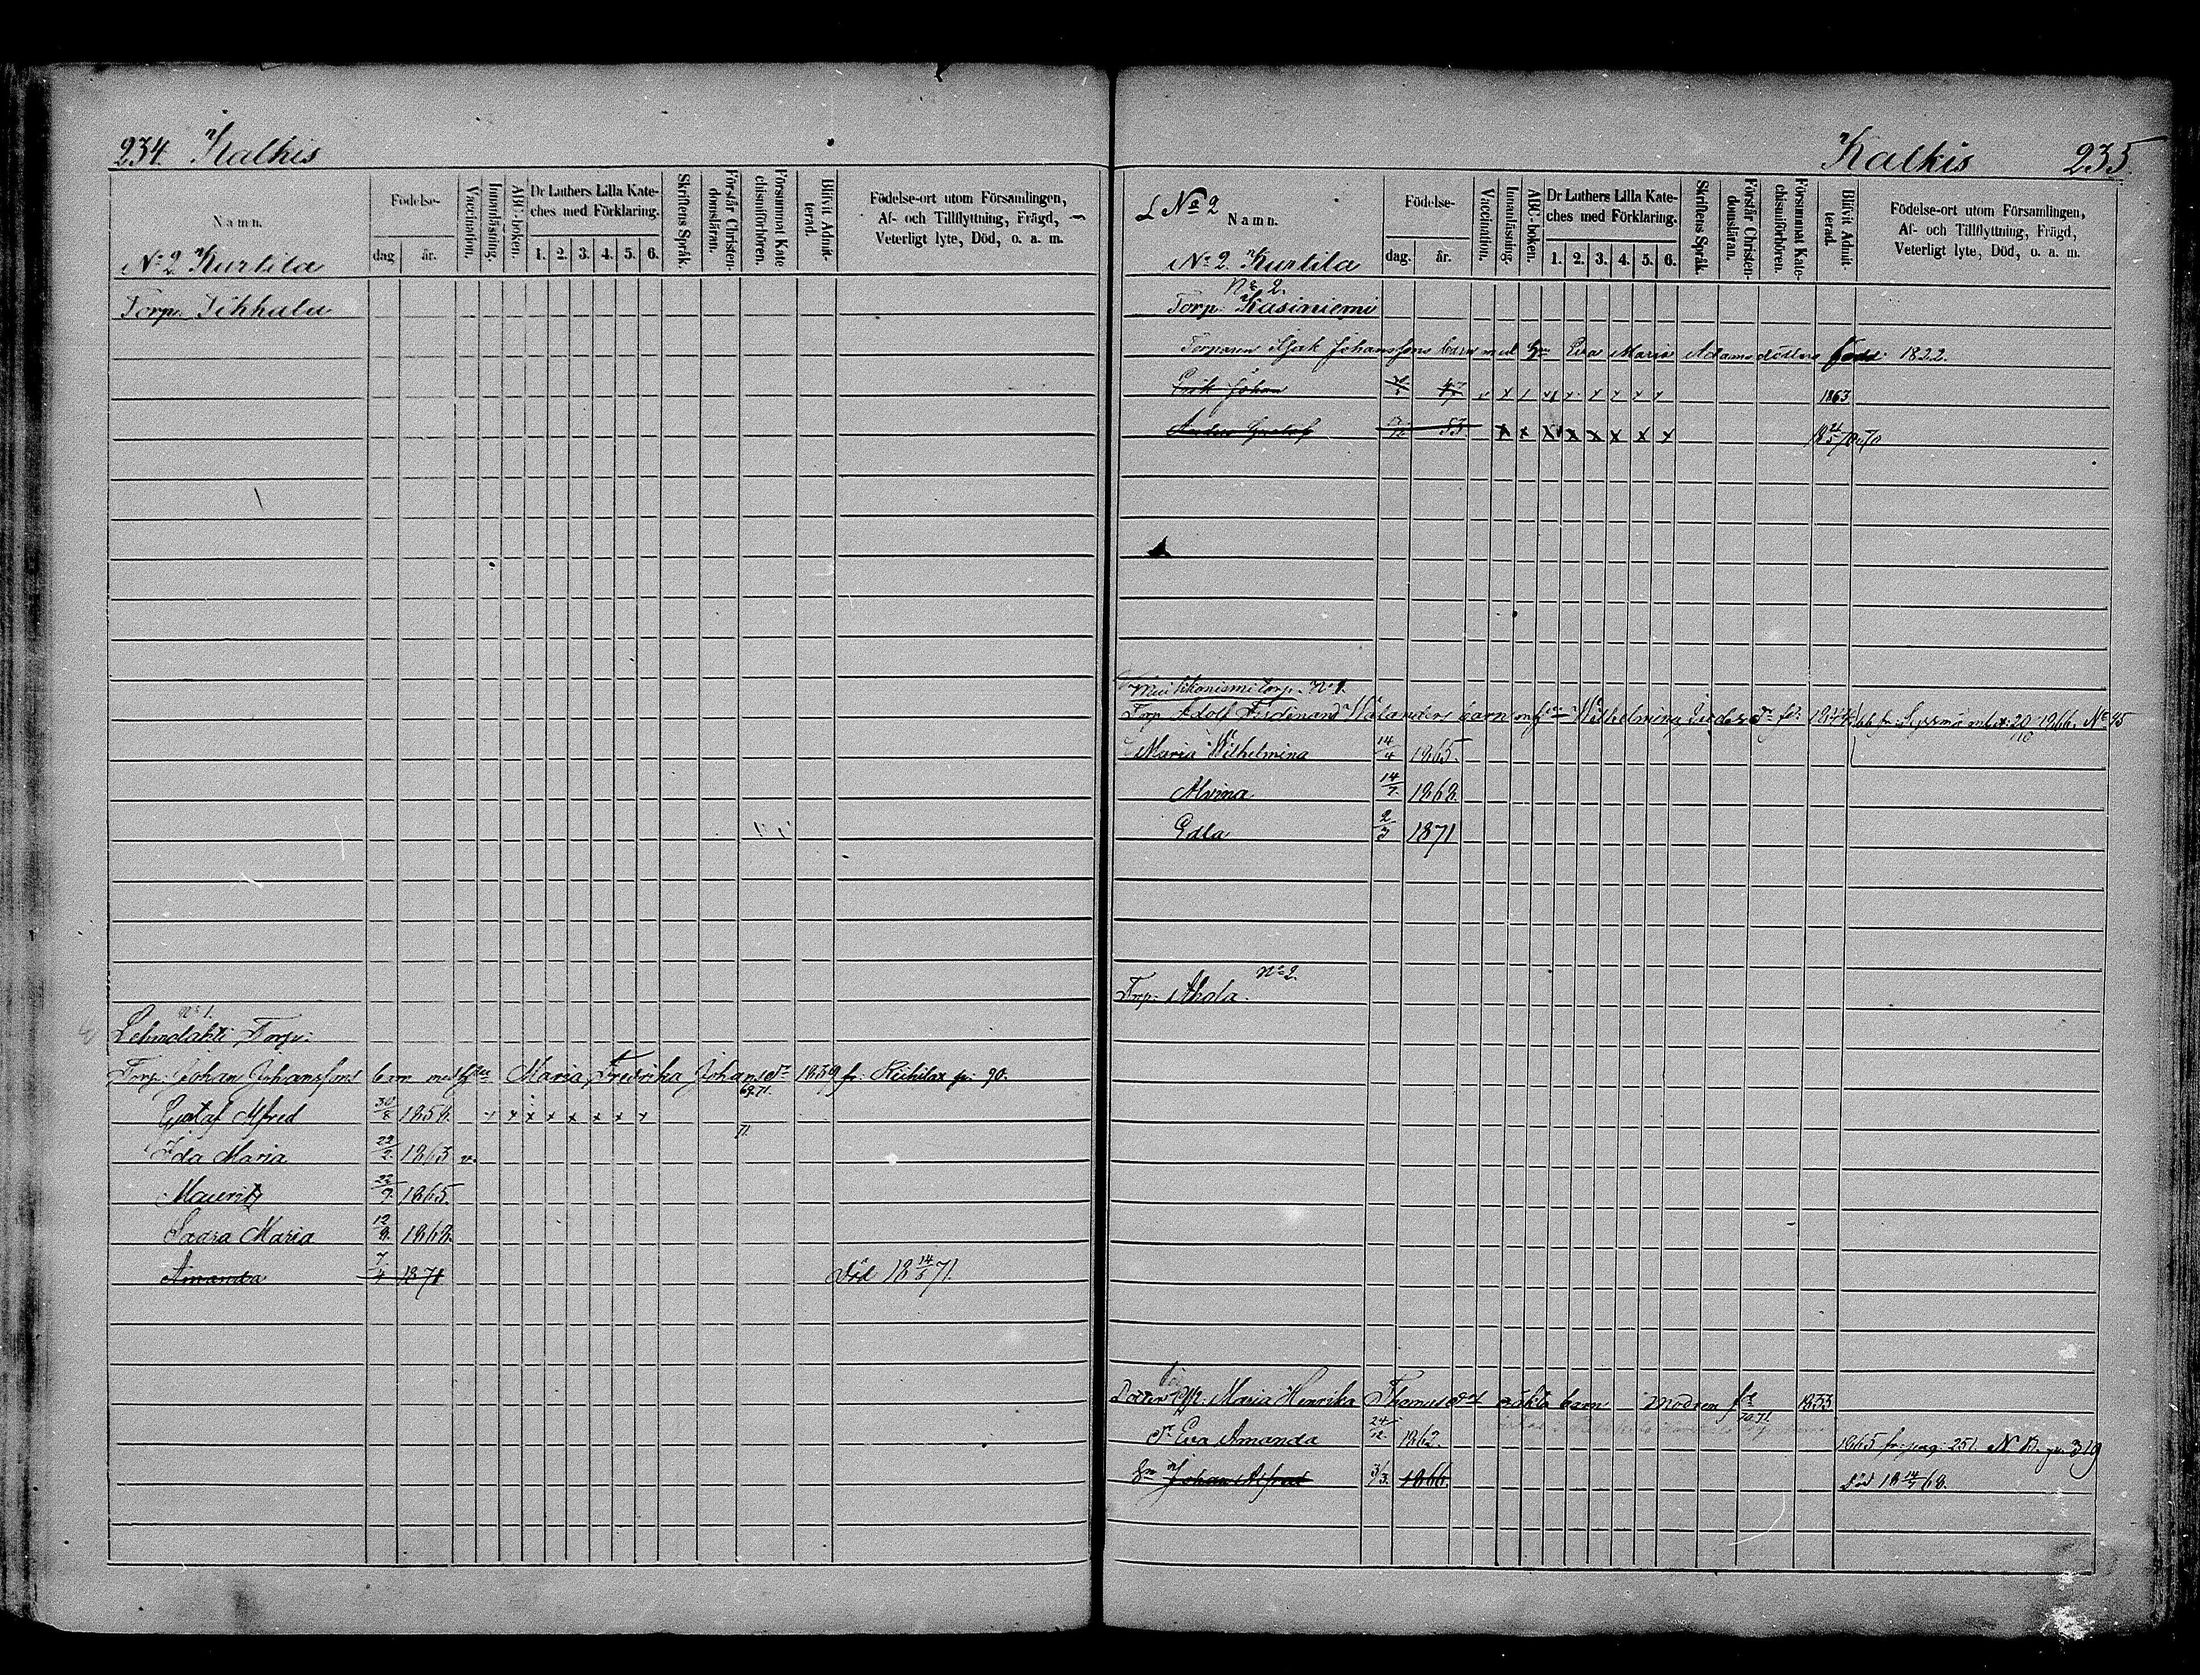 234. Kalkis
Namn.
Födelse-
dag
år.
Vaccination.
Innanläsning.
ABC-boken.
Dr Luthers Lilla Kate-
ches med Förklaring.
1. 2. 3. 4. 5. 6.
Skriftens Språk.
Förstår Christen-
domsläran.
Försummat Kate
chismiförhören.
Blifvit Admit-
terad.
Födelse-ort utom Församlingen,
Af- och Tillflyttning, Frägd,
Veterligt lyte, Död, o. a. m.
No 2 Kurtila
Torp.
No 1.
Torp:
Torp: Johan Johanssons barn med Maria Fredrika Johansdr 1839 fr: p: 90.
69.71.
Gustaf Alfred 30/8 1858. x x x x x x x
71.
Ida Maria 22/2 1863 v.
Mauritz 22/9 1865.
Maria 12/8 1868.
Amanda 7/4 1871 Död 18 14/5 71.
Kalkis 235
No 2
Namn.
Födelse-
dag.
år.
Vaccination.
Innanläsning.
ABC-boken.
Dr Luthers Lilla Kate-
ches med Förklaring.
1. 2. 3. 4. 5. 6.
Skriftens Språk.
Förstår Christen-
domsläran.
Försummat Kate-
chismiförhören.
Blifvit Admit-
terad.
Födelse-ort utom Församlingen,
Af- och Tillflyttning, Frägd,
Veterligt lyte, Död, o. a. m.
No 2. Kurtila
No 2.
Torp. Kasiniemi
Torparen Isak Johanssons barn med Eva Maria Adamsdotter född 1822.
Erik Johan 47 1863
Anders Gustaf 53
Torp. No 1.
Torp. Adolf Ferdinand barn med Wilhelmina fr: Sysmä 20/10 1866. No 95
Maria Wilhelmina 14/4 1865.
Alvina 14/7 1868.
Edla 2/3 1871
No 2.
Torp: Akola.
Maria Henrika Thomasdr oäkta barn Modren 1833
70.71.
Dr Eva Amanda 24/12 1862. 1865 fr: pag: 251. N B. p: 319
Sn Johan Alfred 3/3. 1866. Död 18 68.